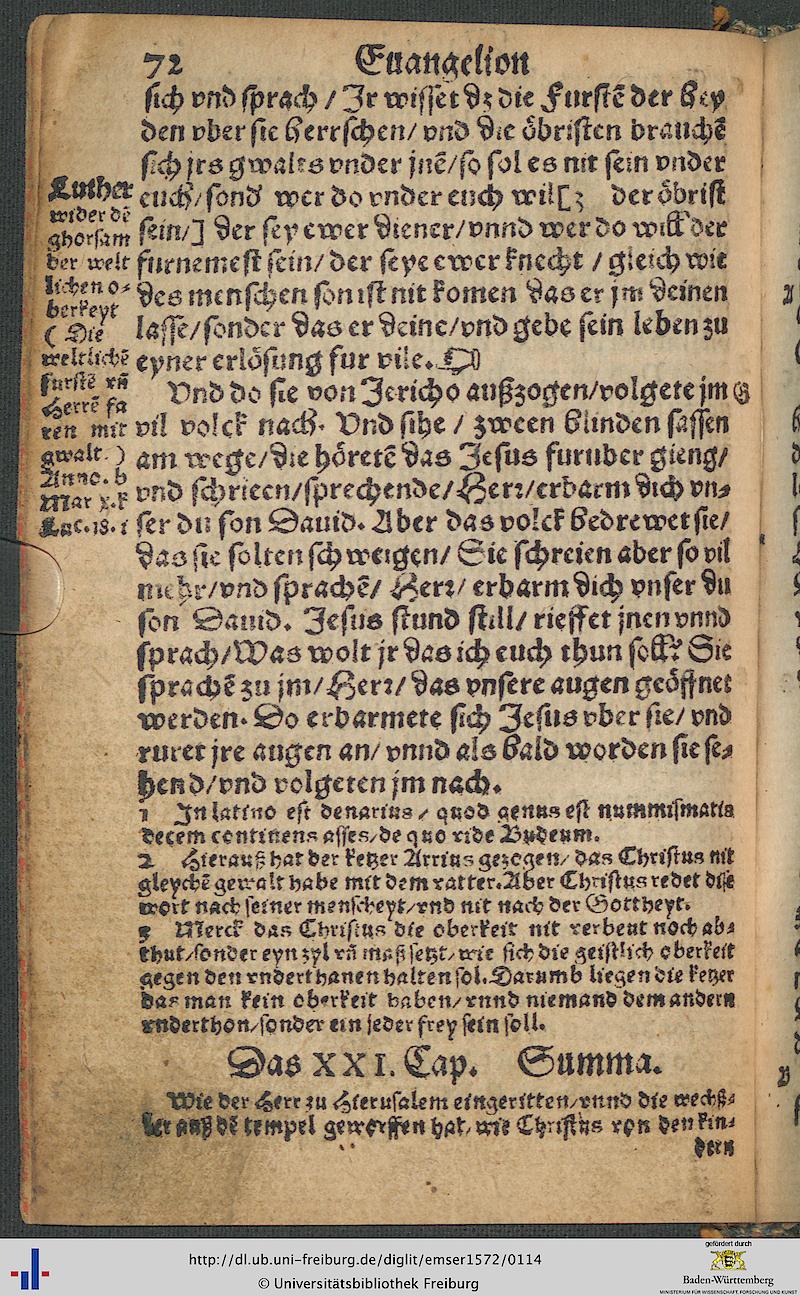 72 Euangelion
sich vnd sprach / Jr wisset dz die Furstē der Hey
den vber sie herrschen/ vnd die öbristen brauchē
sich jrs gwalts vnder jnē/so sol es nit sein vnder
euch/sond' wer do vnder euch wil[z der öbrist
sein/] der sey ewer diener/vnnd wer do will der
furnemest sein/der seye ewer knecht / gleich wie
des menschen son ist nit komen das er jm deinen
lasse/sonder das er deine/vnd gebe sein leben zu
eyner erlösung fur vile.
Vnd do sie von Jericho außzogen/volgete jm
vil volck nach. Vnd sihe / zween blinden sassen
am wege/die höretē das Jesus furuber gieng/
vnd schrieen/sprechende/Herr/erbarm dich vn-
ser du son Dauid. Aber das volck bedrewet sie/
das sie solten schweigen/ Sie schreien aber so vil
mehr/vnd sprachē/ Herr/ erbarm dich vnser du
son Dauid. Jesus stund still/ rieffet jnen vnnd
sprach/Was wolt jr das ich euch thun soll? Sie
sprachē zu jm/Herr/das vnsere augen geöffnet
werden. Do erbarmete sich Jesus vber sie/ vnd
ruret jre augen an/ vnnd als bald worden sie se-
hend/vnd volgeten jm nach.
Luther
wider dē
ghorsam
der welt
lichen o-
berkeyt
( Die
weltlichē
furstē vñ
Herrē fa
ren mit
gwalt. )
Anno. b
Mar x.k
Luc.18.i
1 In latino est denarius, quod genus est nummismatis
decem continens asses, de quo vide Budeum.
2 Hierauß hat der ketzer Arrius gezogen/ das Christus nit
gleychē gewalt habe mit dem vatter. Aber Christus redet dise
wort nach seiner menscheyt/vnd nit nach der Gottheyt.
3 Merck das Christus die oberkeit nit verbeut noch ab-
thut/sonder eyn zyl vñ maß setzt/wie sich die geistlich oberkeit
gegen den vnderthanen halten sol. Darumb liegen die ketzer
das man kein oberkeit haben/vnnd niemand dem andern
vnderthon/sonder ein jeder frey sein soll.
Das XXI. Cap. Summa.
Wie der Herr zu Hierusalem eingeritten/vnnd die wechß-
ler auß dē tempel geworffen hat/wie Christus von den kin-
dern
http://dl.ub.uni-freiburg.de/diglit/emser1572/0114
© Universitätsbibliothek Freiburg
gefördert durch
Baden-Württemberg
MINISTERIUM FÜR WISSENSCHAFT, FORSCHUNG UND KUNST